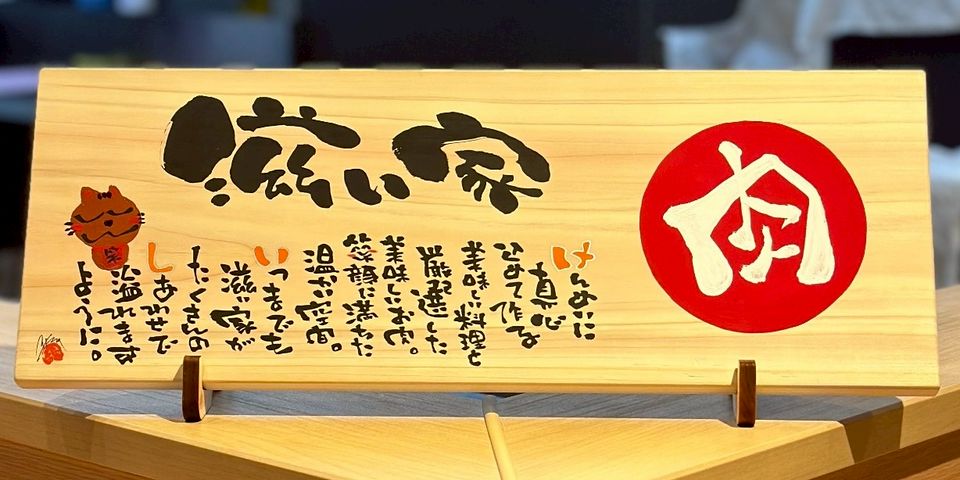 滋い家
肉
けんめいに
真心
こめて作る
美味しい料理と
厳選した
美味しいお肉。
笑顔に満ちた
温かい空間。
いつまでも
滋い家が
たくさんの
しあわせで
溢れます
ように。
笑